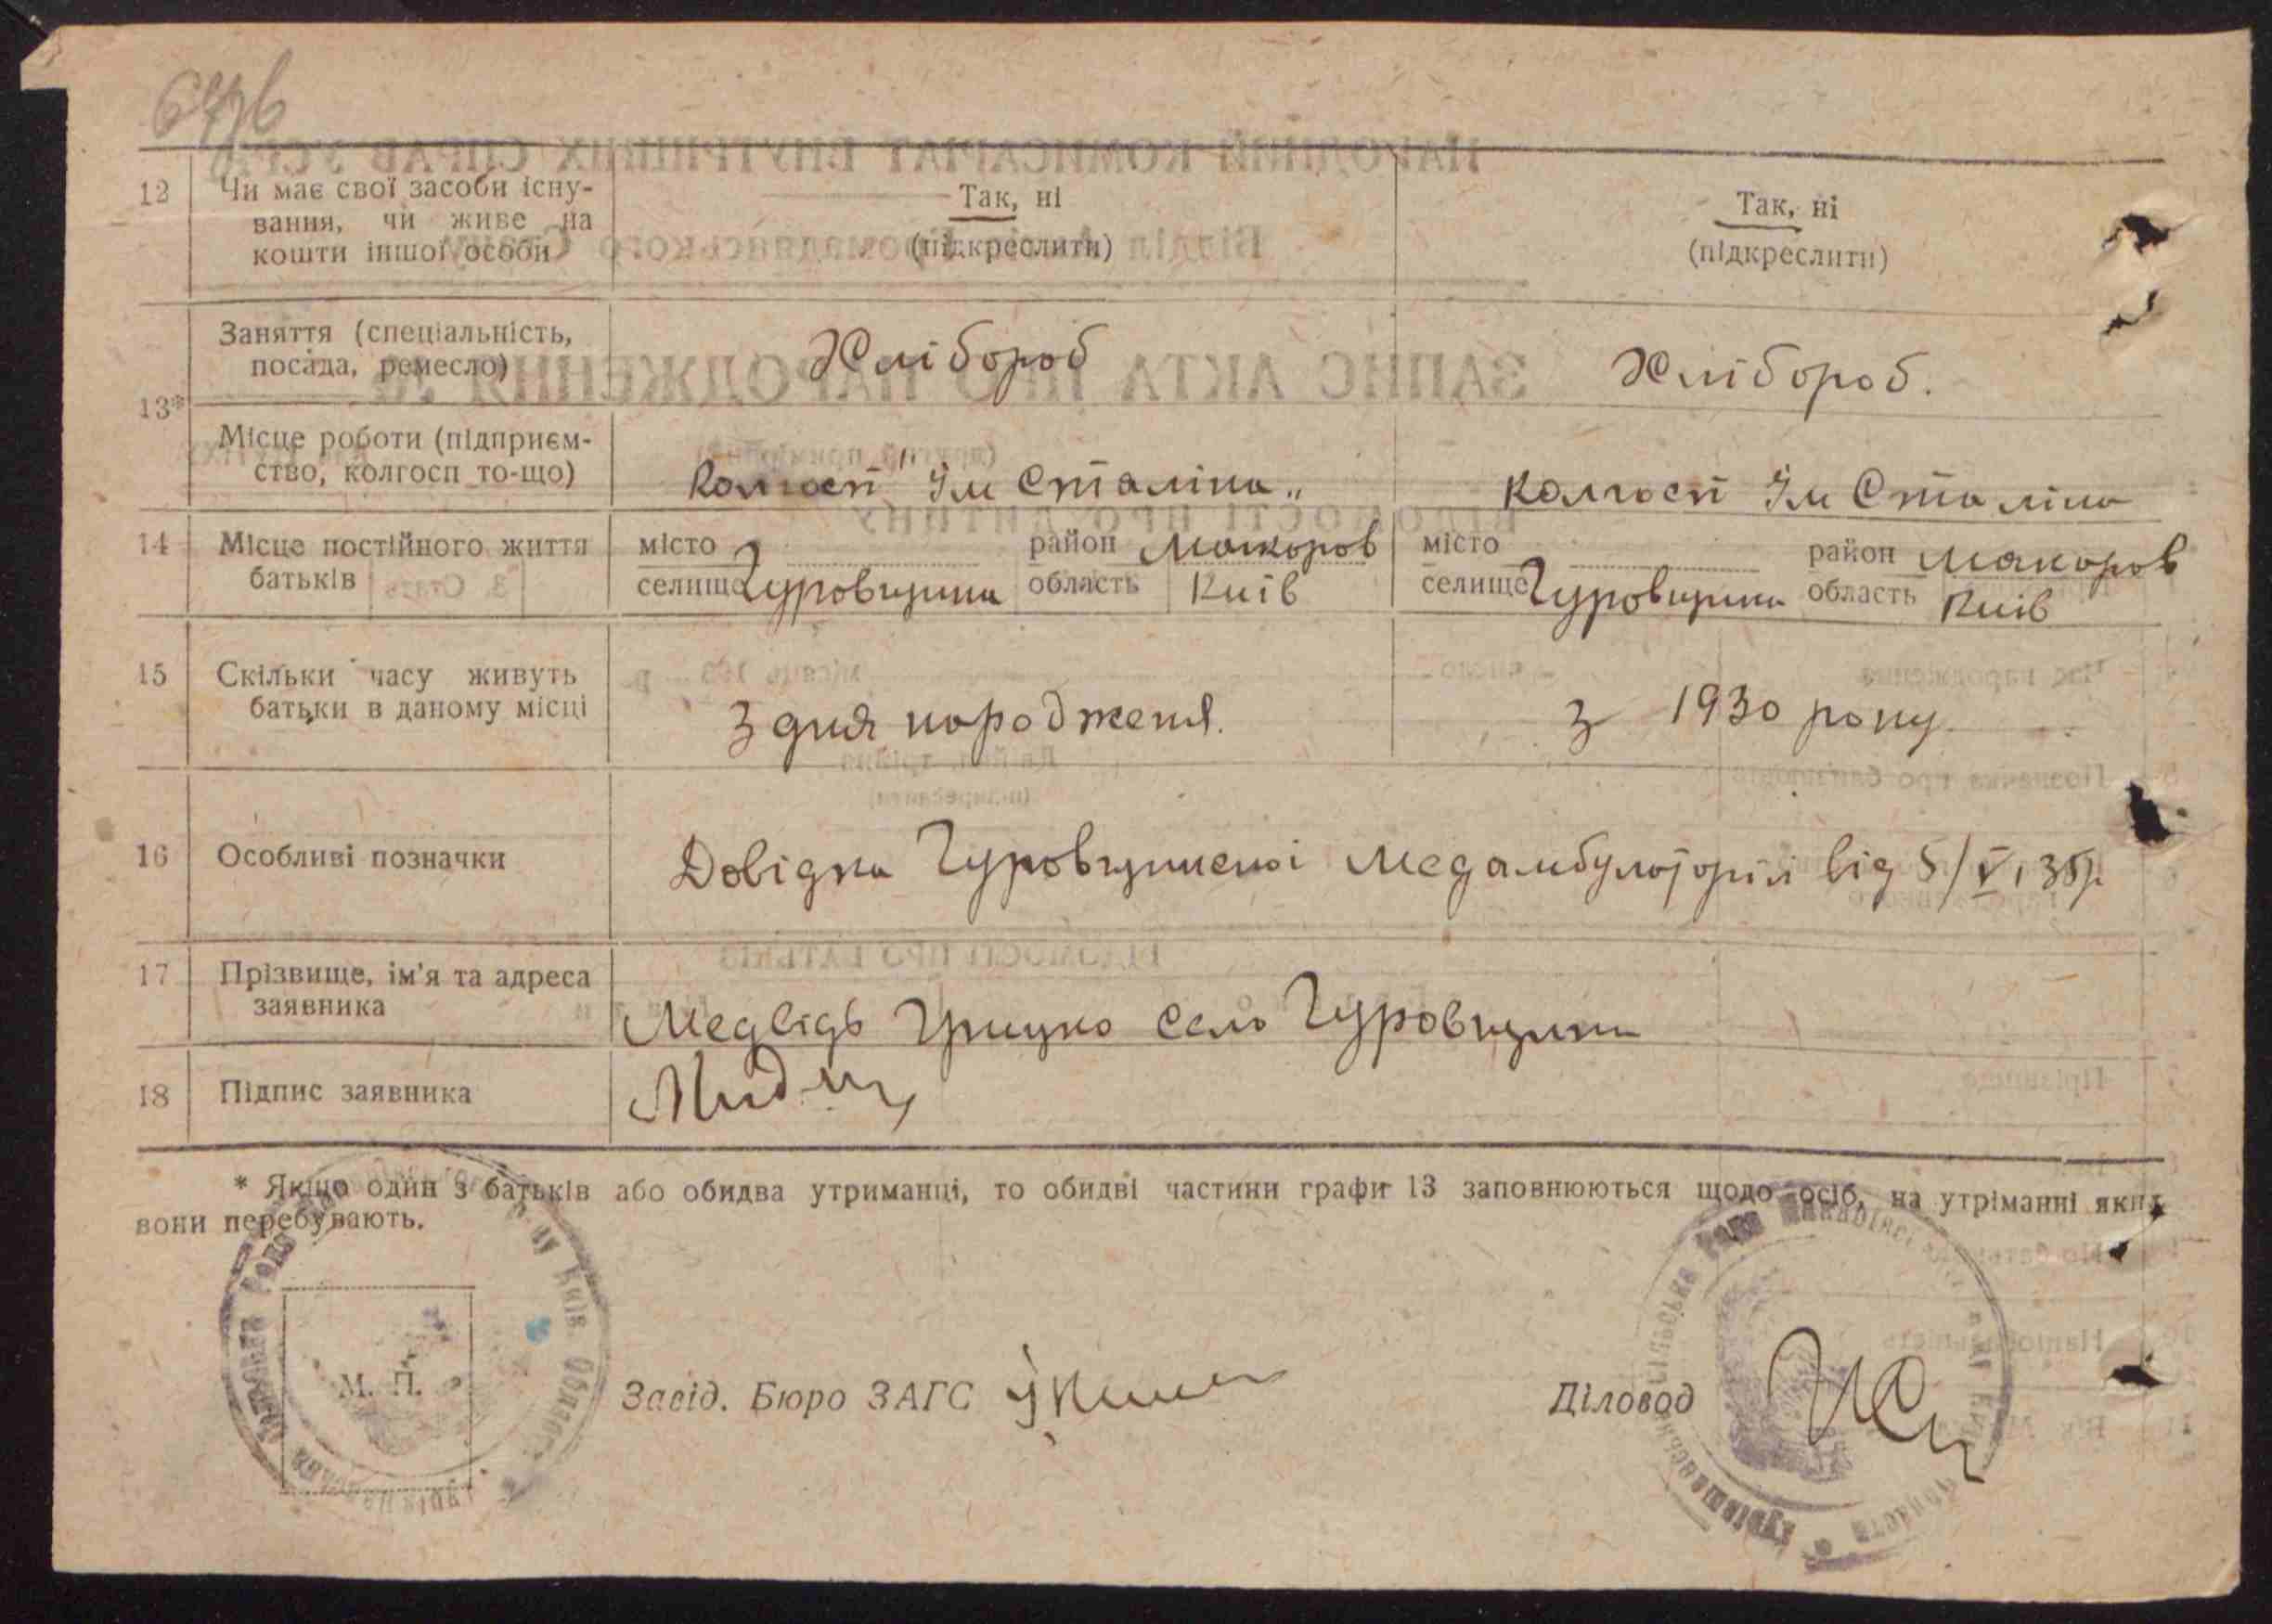 12 Чи має свої засоби існу- Так, ні Так, ні
вання, чи живе на (підкреслити) (підкреслити)
кошти іншої особи
13* Заняття (спеціальність, Хлібороб Хлібороб.
посада, ремесло)
Місце роботи (підприєм- Колгосп "Ім Сталіна" колгосп Ім Сталіна
ство, колгосп то-що)
14 Місце постійного життя місто район Макоров місто район Макоров
батьків селище Гуровщина область Київ селище Гуровщина область Київ
15 Скільки часу живуть з дня народженя. з 1930 року
батьки в даному місці
16 Особливі позначки Довідка Гуровщинської Медамбулаторії від 5/V, 35р.
17 Прізвище, ім'я та адреса Медвідь Грицко село Гуровщина
заявника
18 Підпис заявника
* Якщо один з батьків або обидва утриманці, то обидві частини графи 13 заповнюються щодо осіб, на утріманні яких
вони перебувають.
М. П.
Завід. Бюро ЗАГС Діловод